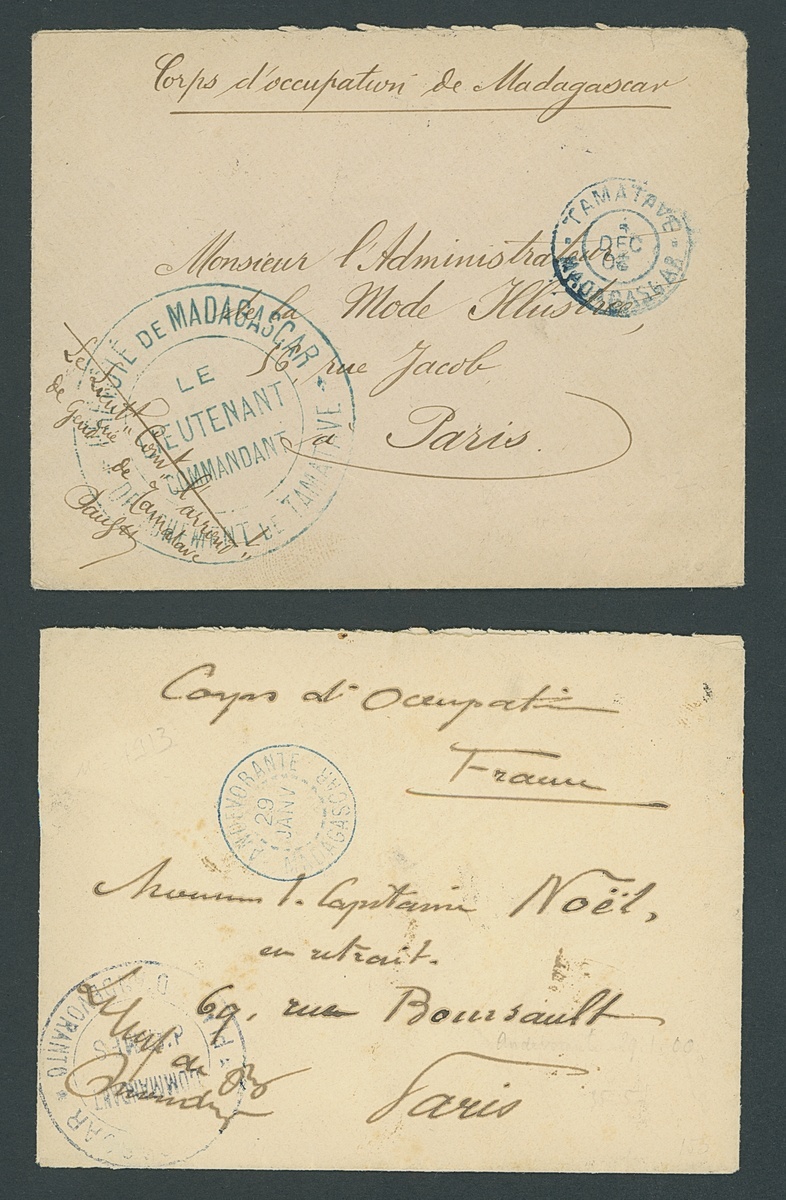 Corps d'occupation de Madagascar
TAMATAVE
DEC
MADAGASCAR
Monsieur l'Administrateur
de la Mode Illustrée
56, rue Jacob
à Paris.
DE MADAGASCAR
LE
LIEUTENANT
COMMANDANT
DE TAMATAVE
Le Lieut Com t l'arrond
de Gend rie de Tamatave
Corps d'Occupation
France
1913
ANDEVORANTE
29
JANV
MADAGASCAR
Monsieur le Capitaine Noël,
en retrait.
69, rue Boursault
Paris
COMMANDANT